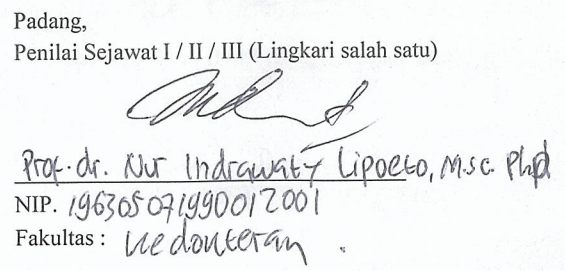 Padang,
Penilai Sejawat I / II / III (Lingkari salah satu)
Prof. dr. Nur Indrawaty Lipoeto, M.Sc. PhD
NIP. 196305071990012001
Fakultas : Kedokteran .